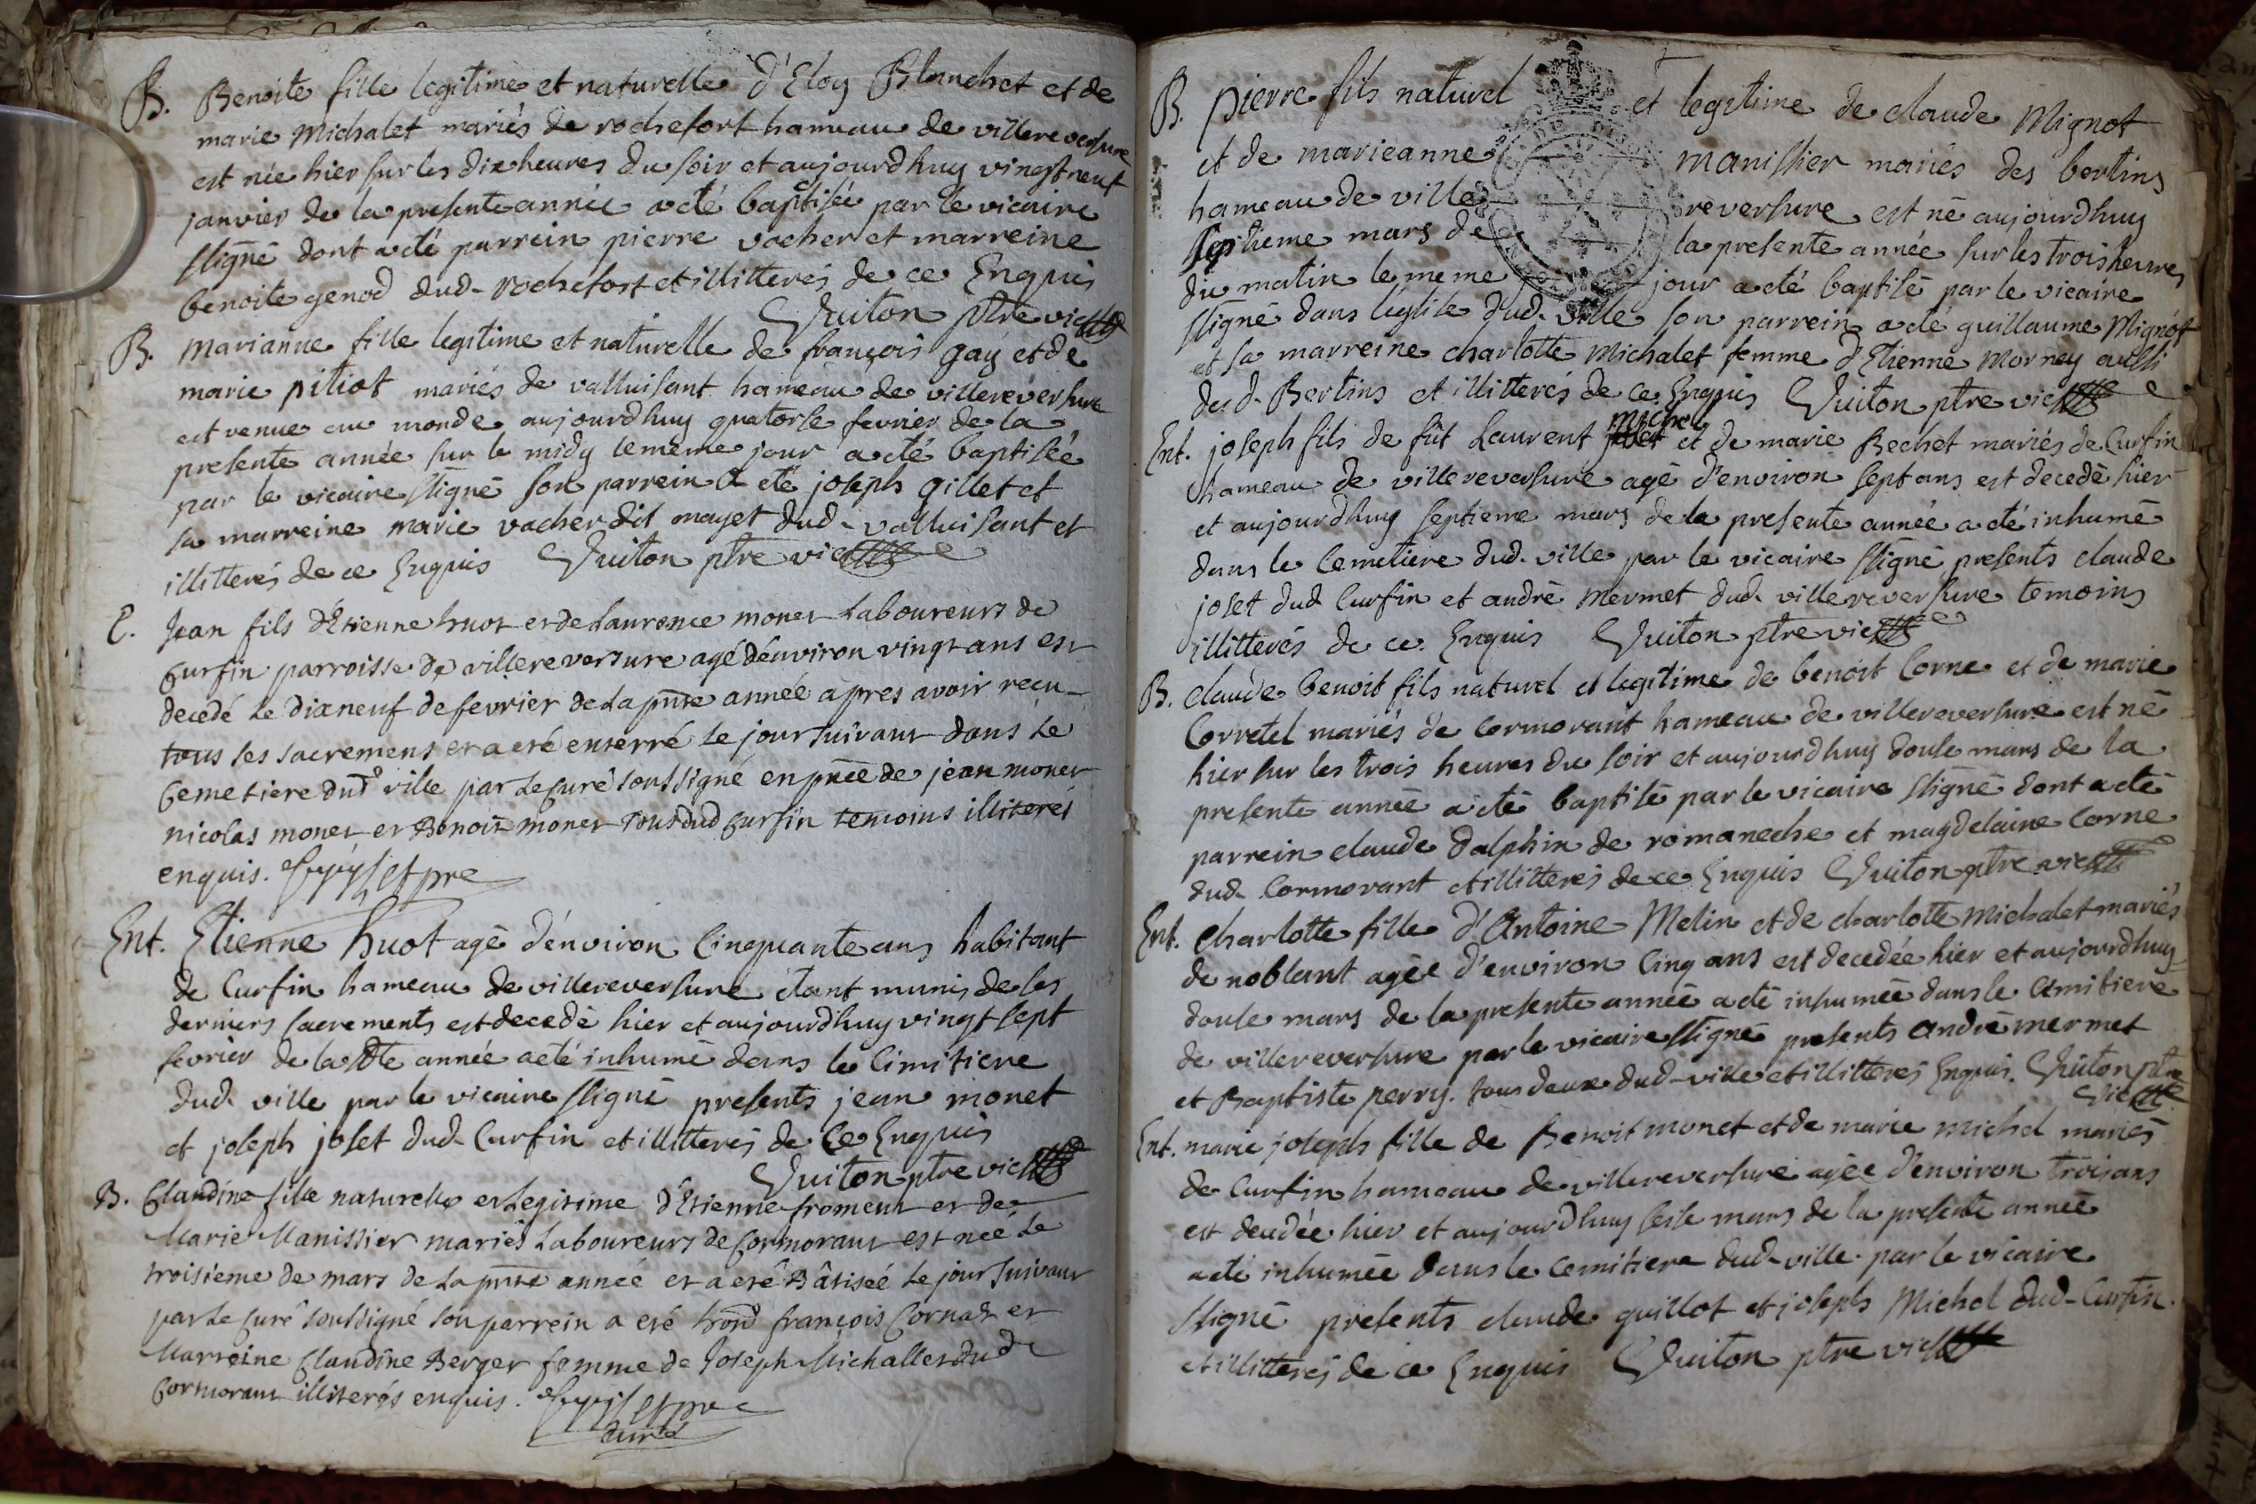 B. Benoite fille legitime et naturelle d'Eloy Blanchet et de
marie Michalet mariés de rochefort hameau de villereversure
est née hier sur les dix heures du soir et aujourdhuy vingt neuf
janvier de la presente année a eté baptisée par le vicaire
ssigné dont a eté parrein pierre vacher et marreine
benoite genod dud. rochefort et illitterés de ce Enquis
Vuiton ptre vic
B. Marianne fille legitime et naturelle de françois gay et de
marie pitiot mariés de valluisant hameau de villereversure
est venue au monde aujourdhuy quatorse fevrier de la
presente année sur le midy le meme jour a eté baptisée
par le vicaire ssigné son parrein a eté joseph gillet et
sa marreine marie vacher dit mayet dud. valluisant et
illitterés de ce Enquis Vuiton ptre vic
E. Jean fils d'Etienne huot et de Laurence monet Laboureurs de
Curfin parroisse de villereversure agé d'environ vingt ans est
decedé le dixneuf de fevrier de la pnte année apres avoir recu
tous ses sacremens et a eté enterré le jour suivant dans le
Cemetiere dud ville par le Curé soussigné en pnce de jean monet
nicolas monet et Benoit monet tous dud Curfin temoins illiterés
enquis. ptre
Ent. Etienne huot agé d'environ Cinquante ans habitant
de Curfin hameau de villereversure etant munis de ses
derniers sacrements est decedé hier et aujourdhuy vingt sept
fevrier de la pnte année a eté inhumé dans le Cimitiere
dud. ville par le vicaire ssigné presents jean monet
et joseph joset dud. Curfin et illitterés de Ce Enquis
Vuiton ptre vic
B. Claudine fille naturelle et Legitime d'Etienne froment et de
Marie Manissier mariés Laboureurs de Cormorant est née le
troisieme de mars de la pnte année et a eté Bâtisée le jour suivant
par le Curé soussigné son parrein a eté hond françois Cornat et
Marreine Claudine Berger femme de Joseph Michallet dud
Cormorant illiterés enquis. ptre
curé
B. pierre fils naturel et legitime de claude Mignot
et de marieanne manissier mariés des bertins
hameau de villereversure est né aujourdhuy
septieme mars de la presente année sur les trois heures
du matin le meme jour a eté baptisé par le vicaire
ssigné dans l'eglise dud. ville son parrein a eté guillaume Mignot
et sa marreine charlotte Michalet femme d'Etienne Morney aussi
desd. Bertins et illitterés de ce Enquis Vuiton ptre vic
michel
Ent. joseph fils de fût Laurent et de marie Bechet mariés de Curfin
hameau de villereversure agé d'environ sept ans est decedé hier
et aujourdhuy septieme mars de la presente année a eté inhumé
dans le Cemetiere dud. ville par le vicaire ssigné presents claude
joset dud Curfin et andré mermet dud. villereversure temoins
illitterés de ce Enquis Vuiton ptre vic
B. claude benoit fils naturel et legitime de benoit Corne et de marie
Corretel mariés de Cormorant hameau de villereversure est né
hier sur les trois heures du soir et aujourdhuy douse mars de la
presente année a eté baptisé par le vicaire ssigné dont a eté
parrein claude dalphin de romaneche et magdelaine Corne
dud. Cormorant et illitterés de ce Enquis Vuiton ptre vic
Ent. charlotte fille d'Antoine Melin et de charlotte Michalet mariés
de noblant agée d'environ Cinq ans est decedée hier et aujourdhuy
douse mars de la presente année a eté inhumée dans le Cimitiere
de villereversure par le vicaire ssigné presents andré mermet
et Baptiste perry. tous deux dud-ville et illitterés Enquis. Vuiton ptre
vic
Ent. marie joseph fille de Benoit monet et de marie michel mariés
de Curfin hameau de villereversure agée d'environ trois ans
est decedée hier et aujourdhuy seise mars de la presente année
a eté inhumée dans le Cemitiere dud-ville par le vicaire
ssigné presents claude guillot et joseph Michel dud-Curfin.
et illitterés de ce Enquis Vuiton ptre vic